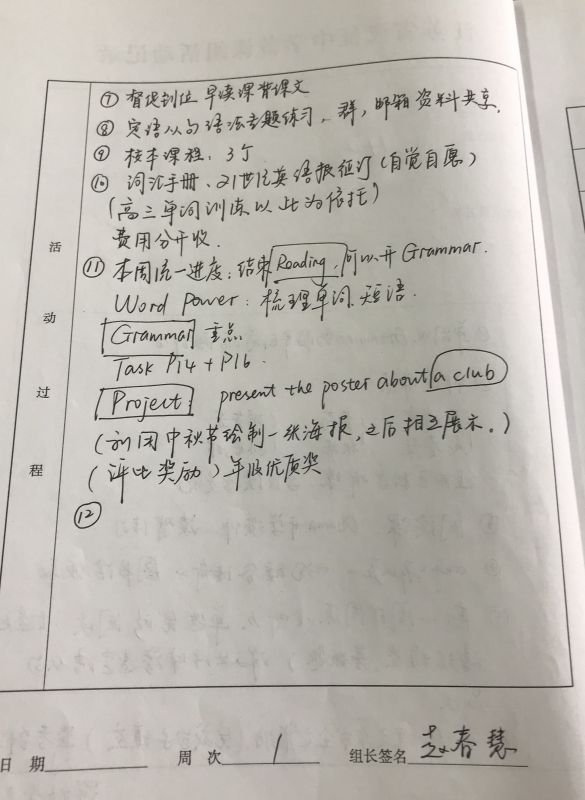 ⑦ 督促到位 早读课背课文
⑧ 定语从句语法专题练习,群,邮箱资料共享.
⑨ 校本课程:3个
⑩ 词汇手册、21世纪英语报征订(自觉自愿)
(高三单词训练以此为依托)
费用分开收.
⑪ 本周统一进度:结束Reading,可以开Grammar.
Word Power:梳理单词.短语.
Grammar 重点
Task P14 + P16.
Project: present the poster about a club
(利用中秋节绘制一张海报,之后相互展示。)
(评比奖励)年级优质奖
⑫
活动过程
日 期 周 次 1 组长签名 赵春慧